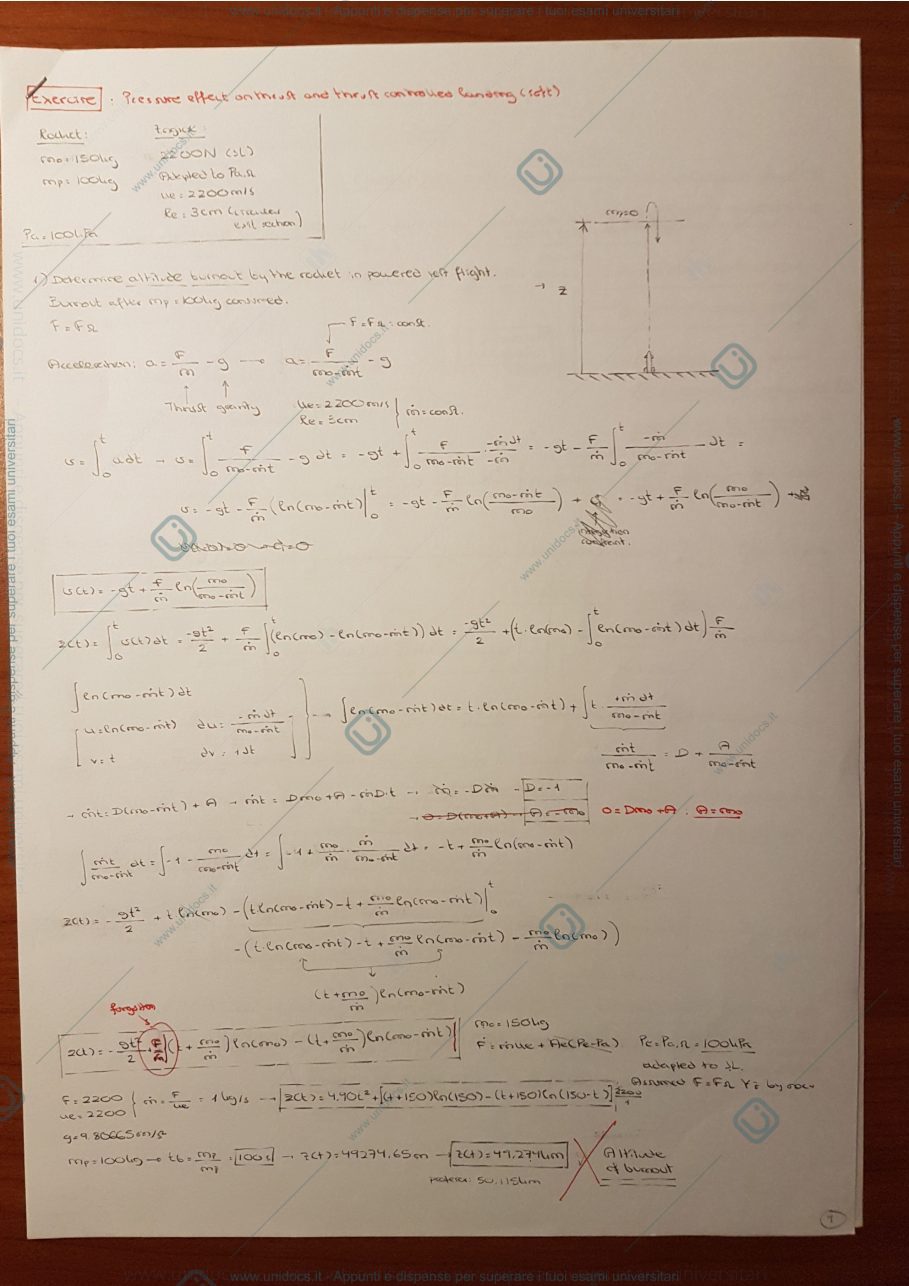 www.unidocs.it - Appunti e dispense per superare i tuoi esami universitari
Exercise : Pressure effect on thrust and thrust controlled landing (soft)
Rocket:
m₀ = 150kg
mp = 100kg
Engine:
2200N (SL)
Adapted to Pa,Ω
ue = 2200 m/s
Re = 3cm (circular exit section)
Pa = 100kPa
1) Determine altitude burnout by the rocket in powered vert flight.
Burnout after mp = 100kg consumed.
F = FΩ
F = FΩ : const.
z
Acceleration: a = F/m - g → a = F/(m₀-ṁt) - g
Thrust gravity
ue = 2200 m/s
Re = 3cm
ṁ = const.
v = ∫₀ᵗ a dt → v = ∫₀ᵗ F/(m₀-ṁt) - g dt = -gt + ∫₀ᵗ F/(m₀-ṁt) · -ṁdt/-ṁ = -gt - F/ṁ ∫₀ᵗ -ṁ/(m₀-ṁt) dt =
v = -gt - F/ṁ (ln(m₀-ṁt)|₀ᵗ = -gt - F/ṁ ln((m₀-ṁt)/m₀) + = -gt + F/ṁ ln(m₀/(m₀-ṁt))
integration constant.
v(t) = -gt + F/ṁ ln(m₀/(m₀-ṁt))
z(t) = ∫₀ᵗ v(t)dt = -gt²/2 + F/ṁ ∫₀ᵗ (ln(m₀) - ln(m₀-ṁt)) dt = -gt²/2 + (t·ln(m₀) - ∫₀ᵗ ln(m₀-ṁt) dt) F/ṁ
∫ln(m₀-ṁt)dt
u = ln(m₀-ṁt) du = -ṁdt/(m₀-ṁt)
v = t dv = 1dt
→ ∫ln(m₀-ṁt)dt = t·ln(m₀-ṁt) + ∫t · +ṁdt/(m₀-ṁt)
ṁt/(m₀-ṁt) = D + A/(m₀-ṁt)
→ ṁt = D(m₀-ṁt) + A → ṁt = Dm₀ + A - ṁD·t → ṁ = -Dṁ → D = -1
→ 0 = D(m₀+A) → A = -m₀ 0 = Dm₀ + A : A = m₀
∫ṁt/(m₀-ṁt) dt = ∫-1 - m₀/(m₀-ṁt) dt = ∫-1 + m₀/ṁ · ṁ/(m₀-ṁt) dt = -t + m₀/ṁ ln(m₀-ṁt)
z(t) = -gt²/2 + t ln(m₀) - (t ln(m₀-ṁt) - t + m₀/ṁ ln(m₀-ṁt)|₀ᵗ
-(t·ln(m₀-ṁt) - t + m₀/ṁ ln(m₀-ṁt) - m₀/ṁ ln(m₀))
(t + m₀/ṁ)ln(m₀-ṁt)
forgotten
z(t) = -gt²/2 + F/ṁ [(t + m₀/ṁ)ln(m₀) - (t + m₀/ṁ)ln(m₀-ṁt)]
m₀ = 150kg
F = ṁue + Ae(Pe-Pa) Pe = Pa,Ω = 100kPa
adapted to SL.
Assumed F = FΩ ∀z by
F = 2200
ue = 2200
ṁ = F/ue = 1 kg/s → z(t) = 4.90t² + [(t+150)ln(150) - (t+150)ln(150-t)] 2200/1
g = 9.80665 m/s²
mp = 100kg → tb = mp/ṁp = 100s → z(t) = 49274.65m → z(t) = 49,274km
Altitude of burnout
professor: 50,115km
1